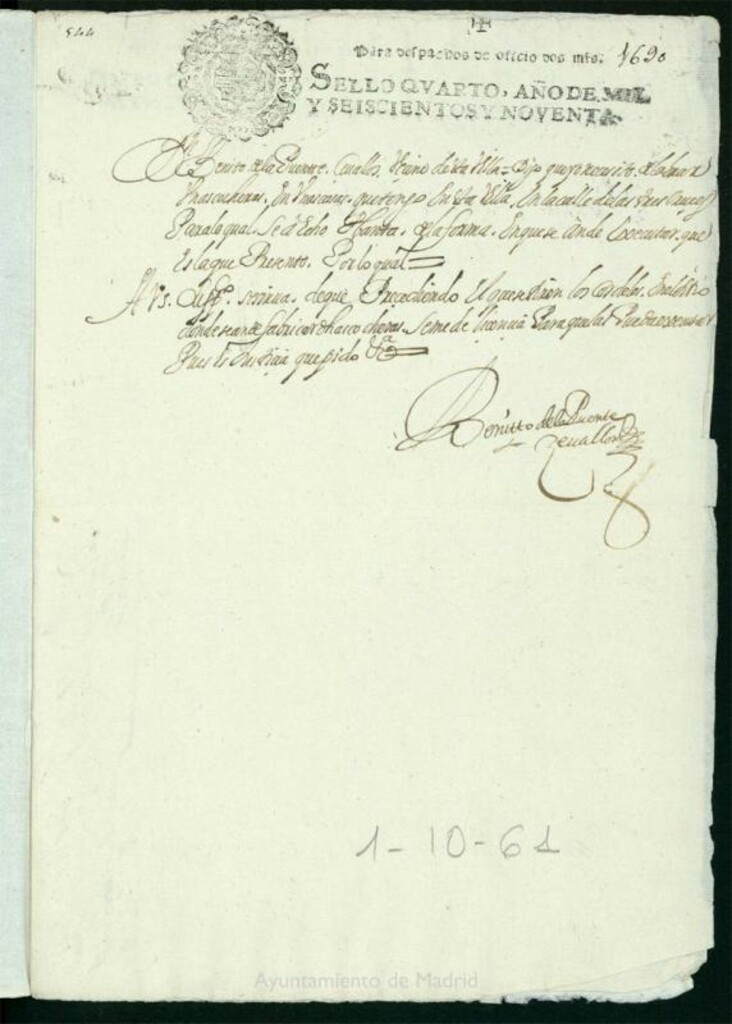 544
Para despachos de oficio dos mrs. 1690
SELLO QVARTO, AÑO DE MIL
Y SEISCIENTOS Y NOVENTA.
Benito de la Puente Cuallos Vecino de esta Villa = Digo que yo necesito de labrar
Unas cocheras, En Unas casas, que tengo En esta Villa, En la calle de las tres Cruzes
Para la qual, Se a Echo Planta, de la forma, En que se An de Executar, que
Es la que Presento, Por lo qual =
A V.S. Supco. se sirva, de que Precediendo El que se tiren los Cordeles, En el sitio
donde se an de fabricar dhas cocheras, Se me de licencia Para que las Pueda
Pues es Justicia que pido Va =
Benitto de la Puente
Zeuallos
1-10-61
Ayuntamiento de Madrid